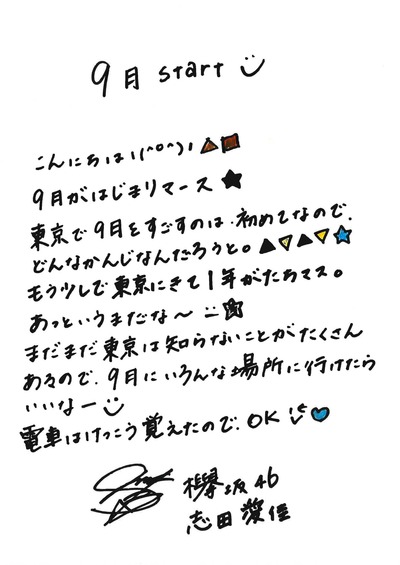 9月 start
こんにちは！(^o^)！▲■
9月がはじまりマース ★
東京で9月をすごすのは、初めてなので、
どんなかんじなんだろうと。▲▽▲▽★
もう少しで東京にきて1年がたちマス。
あっというまだな〜
まだまだ東京は知らないことがたくさん
あるので、9月にいろんな場所に行けたら
いいなー
電車はけっこう覚えたので、OK
欅坂46
志田愛佳